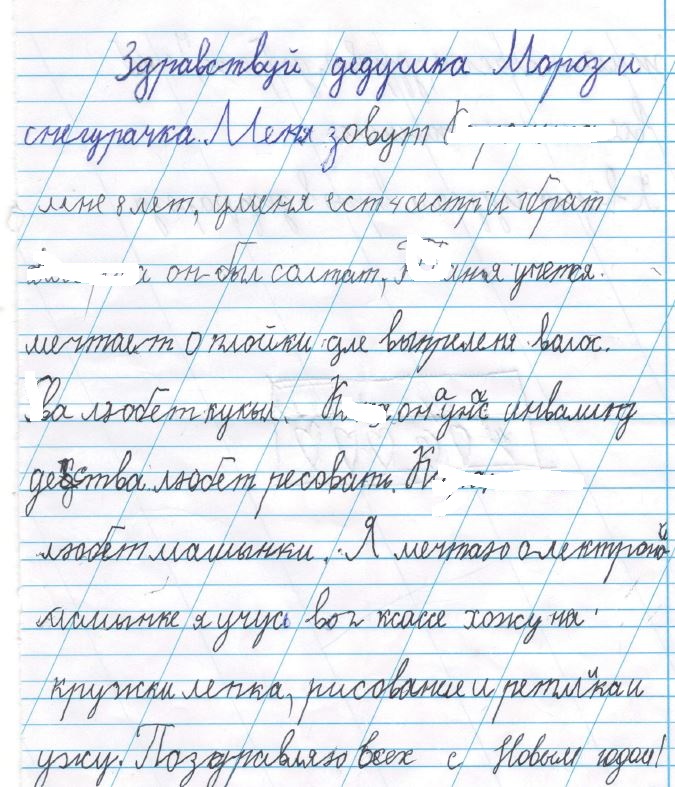 Здравствуй дедушка Мороз и
снегурачка. Меня зовут
мне 8 лет, уменя ест 4 сестр и 1 брат
а он был солтат, учется.
мечтает о плойки дле валос.
Ва любет кукыл. он у нас инвалинд
детства любет ресовать.
любет машынки. Я мечтаю о лектроной
машынке я учус во 2 класе хожу на
кружки лепка, рисование и
ужу. Поздравляю всех с Новым годом!